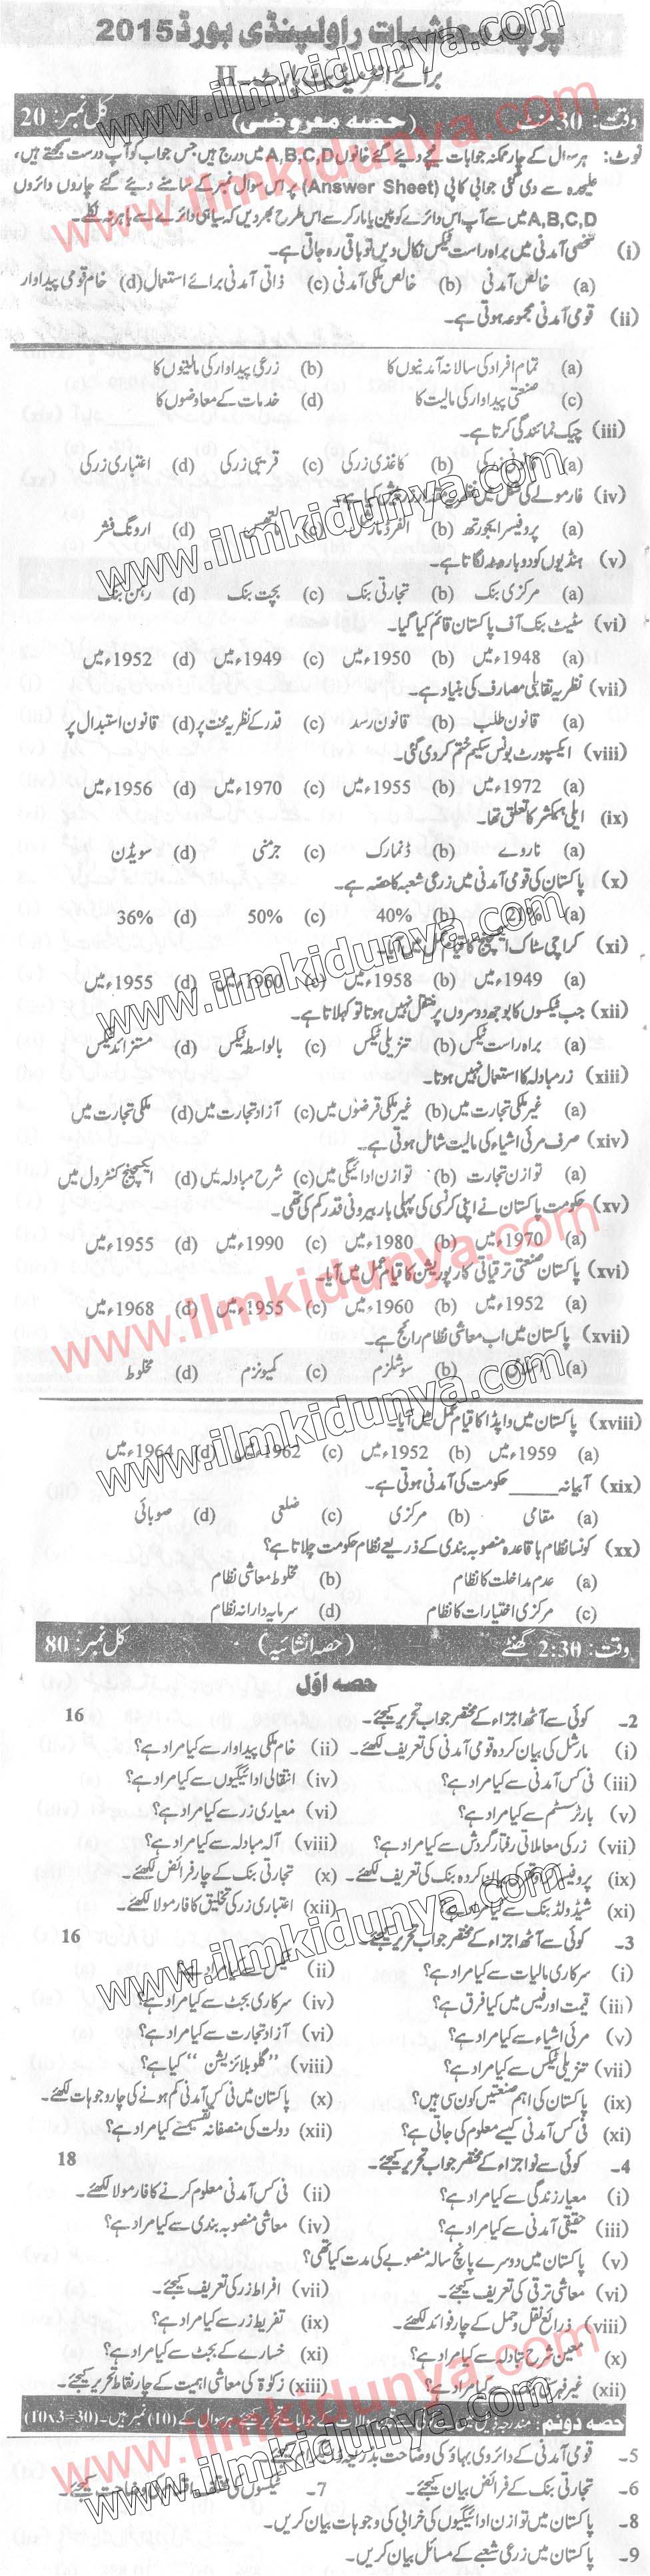 پرچہ معاشیات راولپنڈی بورڈ 2015
برائے انٹرمیڈیٹ پارٹ ـ II
وقت: 30 منٹ (حصہ معروضی) کل نمبر: 20
نوٹ: ہر سوال کے چار ممکنہ جوابات نیچے دیئے گئے خانوں A,B,C,D میں درج ہیں جس جواب کو آپ درست سمجھتے ہیں،
علیحدہ سے دی گئی جوابی کاپی (Answer Sheet) پر اس سوال نمبر کے سامنے دیئے گئے چاروں دائروں
A,B,C,D میں سے آپ اس دائرے کو پین یا مارکر سے اس طرح بھر دیں کہ سیاہی دائرے سے باہر نہ نکلے۔
(i) شخصی آمدنی میں براہ راست ٹیکس نکال دیں تو باقی رہ جاتی ہے۔
(a) خالص آمدنی (b) خالص ملکی آمدنی (c) ذاتی آمدنی برائے استعمال (d) خام قومی پیداوار
(ii) قومی آمدنی مجموعہ ہوتی ہے۔
(a) تمام افراد کی سالانہ آمدنیوں کا (b) زرعی پیداوار کی مالیتوں کا
(c) صنعتی پیداوار کی مالیت کا (d) خدمات کے معاوضوں کا
(iii) چیک نمائندگی کرتا ہے۔
(a) زر کی (b) کاغذی زر کی (c) قریبی زر کی (d) اعتباری زر کی
(iv) فارمولے کی شکل میں نظریہ مقدار زر پیش کیا ہے۔
(a) پروفیسر ایجورتھ (b) الفرڈ مارشل (c) مالتھس (d) ارونگ فشر
(v) ہنڈیوں کو دوبارہ بٹہ لگاتا ہے۔
(a) مرکزی بنک (b) تجارتی بنک (c) بچت بنک (d) رہن بنک
(vi) سٹیٹ بنک آف پاکستان قائم کیا گیا۔
(a) 1948ء میں (b) 1950ء میں (c) 1949ء میں (d) 1952ء میں
(vii) نظریہ تقابلی مصارف کی بنیاد ہے۔
(a) قانون طلب (b) قانون رسد (c) قدر کے نظریہ محنت پر (d) قانون استبدال پر
(viii) ایکسپورٹ بونس سکیم ختم کر دی گئی۔
(a) 1972ء میں (b) 1955ء میں (c) 1970ء میں (d) 1956ء میں
(ix) ایلی ہیکشر کا تعلق تھا۔
(a) ناروے (b) ڈنمارک (c) جرمنی (d) سویڈن
(x) پاکستان کی قومی آمدنی میں زرعی شعبہ کا حصہ ہے۔
(a) 21% (b) 40% (c) 50% (d) 36%
(xi) کراچی سٹاک ایکسچینج کا قیام عمل میں آیا۔
(a) 1949ء میں (b) 1958ء میں (c) 1960ء میں (d) 1955ء میں
(xii) جب ٹیکسوں کا بوجھ دوسروں پر منتقل نہیں ہوتا تو کہلاتا ہے۔
(a) براہ راست ٹیکس (b) تنزیلی ٹیکس (c) بالواسطہ ٹیکس (d) مستزاد ٹیکس
(xiii) زرمبادلہ کا استعمال نہیں ہوتا۔
(a) غیر ملکی تجارت میں (b) غیر ملکی قرضوں میں (c) آزاد تجارت میں (d) ملکی تجارت میں
(xiv) صرف مرئی اشیاء کی مالیت شامل ہوتی ہے۔
(a) توازن تجارت (b) توازن ادائیگی میں (c) شرح مبادلہ میں (d) ایکسچینج کنٹرول میں
(xv) حکومت پاکستان نے اپنی کرنسی کی پہلی بار بیرونی قدر کم کی تھی۔
(a) 1970ء میں (b) 1980ء میں (c) 1990ء میں (d) 1955ء میں
(xvi) پاکستان صنعتی ترقیاتی کارپوریشن کا قیام عمل میں آیا۔
(a) 1952ء میں (b) 1960ء میں (c) 1955ء میں (d) 1968ء میں
(xvii) پاکستان میں اب معاشی نظام رائج ہے۔
(a) اسلامی (b) سوشلزم (c) کمیونزم (d) مخلوط
(xviii) پاکستان میں واپڈا کا قیام عمل میں لایا گیا۔
(a) 1959ء میں (b) 1952ء میں (c) 1962ء میں (d) 1964ء میں
(xix) آبیانہ _____ حکومت کی آمدنی ہوتی ہے۔
(a) مقامی (b) مرکزی (c) ضلعی (d) صوبائی
(xx) کونسا نظام باقاعدہ منصوبہ بندی کے ذریعے نظام حکومت چلاتا ہے؟
(a) عدم مداخلت کا نظام (b) مخلوط معاشی نظام
(c) مرکزی اختیارات کا نظام (d) سرمایہ دارانہ نظام
وقت: 2:30 گھنٹے (حصہ انشائیہ) کل نمبر: 80
حصہ اوّل
2۔ کوئی سے آٹھ اجزاء کے مختصر جواب تحریر کیجئے۔ 16
(i) مارشل کی بیان کردہ قومی آمدنی کی تعریف لکھئے۔ (ii) خام ملکی پیداوار سے کیا مراد ہے؟
(iii) فی کس آمدنی سے کیا مراد ہے؟ (iv) انتقالی ادائیگیوں سے کیا مراد ہے؟
(v) بارٹر سسٹم سے کیا مراد ہے؟ (vi) معیاری زر سے کیا مراد ہے؟
(vii) زر کی معاملاتی رفتار گردش سے کیا مراد ہے؟ (viii) آلہ مبادلہ سے کیا مراد ہے؟
(ix) پروفیسر کی بیان کردہ بنک کی تعریف لکھئے۔ (x) تجارتی بنک کے چار فرائض لکھئے۔
(xi) شیڈولڈ بنک سے کیا مراد ہے؟ (xii) اعتباری زر کی تخلیق کا فارمولا لکھئے۔
3۔ کوئی سے آٹھ اجزاء کے مختصر جواب تحریر کیجئے۔ 16
(i) سرکاری مالیات سے کیا مراد ہے؟ (ii) ٹیکس سے کیا مراد ہے؟
(iii) قیمت اور فیس میں کیا فرق ہے؟ (iv) سرکاری بجٹ سے کیا مراد ہے؟
(v) مرئی اشیاء سے کیا مراد ہے؟ (vi) آزاد تجارت سے کیا مراد ہے؟
(vii) تنزیلی ٹیکس سے کیا مراد ہے؟ (viii) ”گلوبلائزیشن“ کیا ہے؟
(ix) پاکستان کی اہم صنعتیں کون سی ہیں؟ (x) پاکستان میں فی کس آمدنی کم ہونے کی چار وجوہات لکھئے۔
(xi) فی کس آمدنی کیسے معلوم کی جاتی ہے؟ (xii) دولت کی منصفانہ تقسیم سے کیا مراد ہے؟
4۔ کوئی سے نو اجزاء کے مختصر جواب تحریر کیجئے۔ 18
(i) معیار زندگی سے کیا مراد ہے؟ (ii) فی کس آمدنی معلوم کرنے کا فارمولا لکھئے۔
(iii) حقیقی آمدنی سے کیا مراد ہے؟ (iv) معاشی منصوبہ بندی سے کیا مراد ہے؟
(v) پاکستان میں دوسرے پانچ سالہ منصوبے کی مدت کیا تھی؟
(vi) معاشی ترقی کی تعریف کیجئے۔ (vii) افراط زر کی تعریف کیجئے۔
(viii) ذرائع نقل و حمل کے چار فوائد لکھئے۔ (ix) تفریط زر سے کیا مراد ہے؟
(x) معین شرح تبادلہ سے کیا مراد ہے؟ (xi) خسارے کے بجٹ سے کیا مراد ہے؟
(xii) غیر سے کیا مراد ہے؟ (xiii) زکوٰۃ کی معاشی اہمیت کے چار نقاط تحریر کیجئے۔
حصہ دوئم: مندرجہ ذیل میں سے کے جوابات تحریر کیجئے ہر سوال کے (10) نمبر ہیں۔ (10x3=30)
5۔ قومی آمدنی کے دائروی بہاؤ کی وضاحت بذریعہ کیجئے۔
6۔ تجارتی بنک کے فرائض بیان کیجئے۔ 7۔ ٹیکسوں کی مختلف اقسام کی وضاحت کیجئے۔
8۔ پاکستان میں توازن ادائیگیوں کی خرابی کی وجوہات بیان کریں۔
9۔ پاکستان میں زرعی شعبے کے مسائل بیان کریں۔
www.ilmkidunya.com